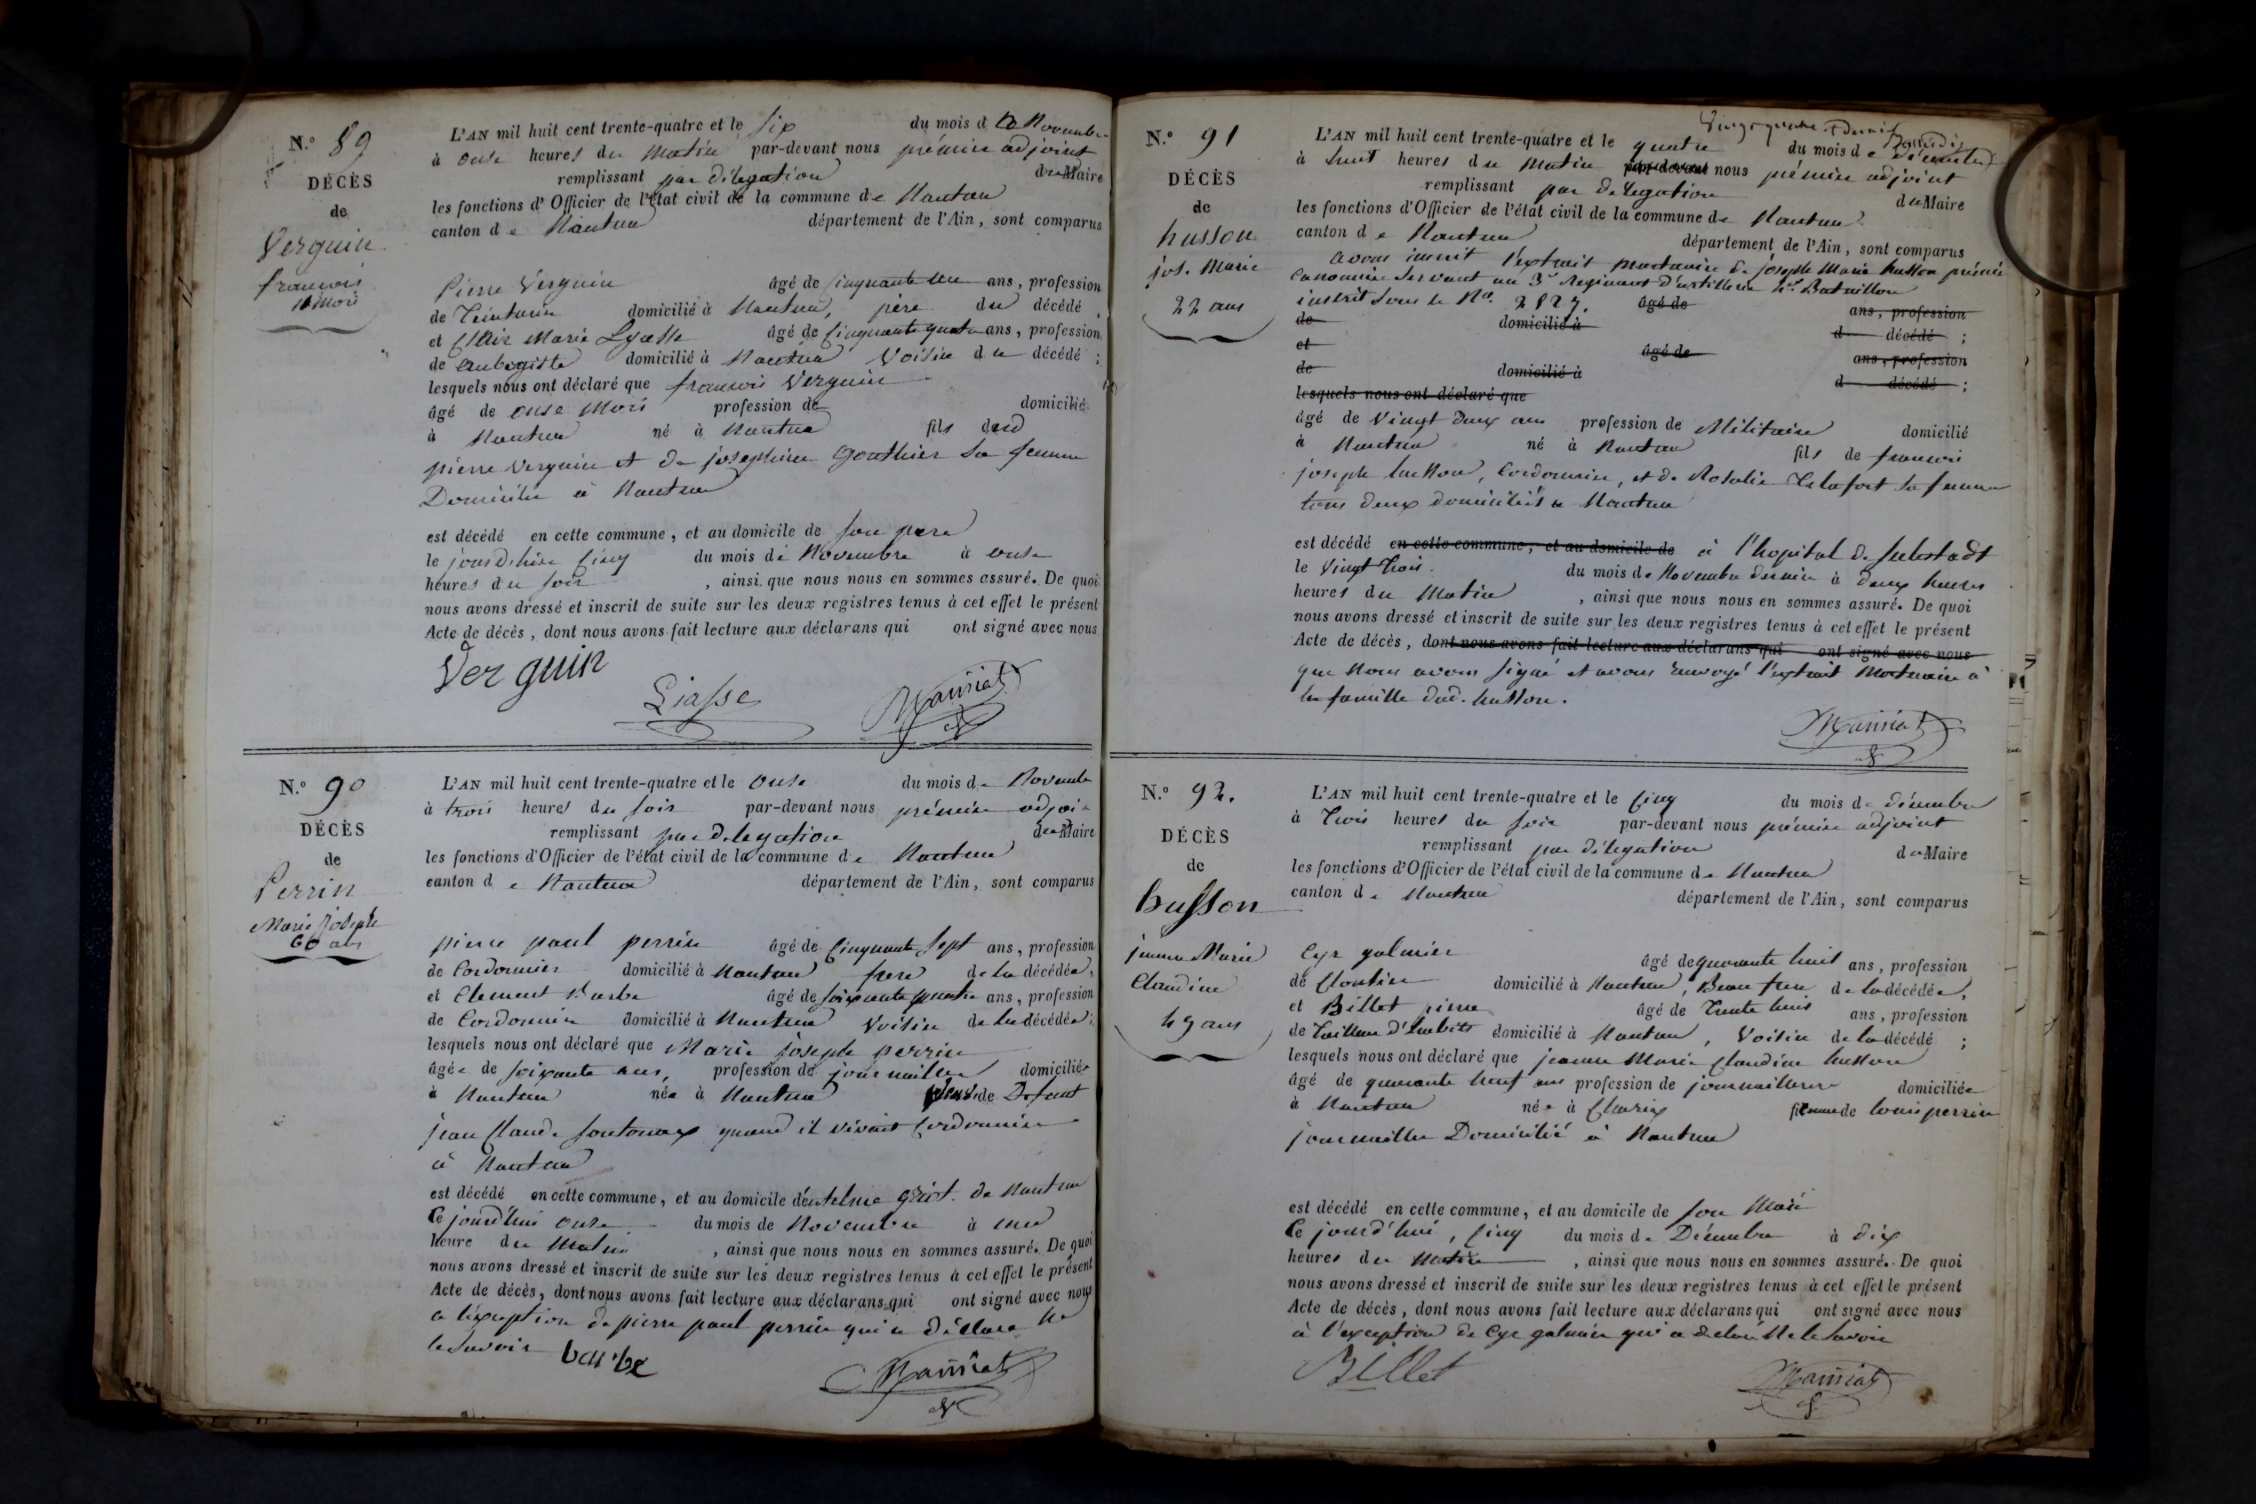 N.° 89
DÉCÈS
de
Verguin
francois
11 mois
L'AN mil huit cent trente-quatre et le six du mois de Novembre
à onse heures du matin par-devant nous prémier adjoint
remplissant par délégation du Maire
les fonctions d'Officier de l'état civil de la commune de Nantua
canton de Nantua département de l'Ain, sont comparus
Pierre Verguin âgé de cinquante un ans, profession
de Teinturier domicilié à Nantua, père du décédé
et Claire Marie Lyasse âgé de cinquante quatre ans, profession
de aubergiste domicilié à Nantua Voisin du décédé ;
lesquels nous ont déclaré que francois Verguin
âgé de onse mois profession de domicilié
à Nantua né à Nantua fils dud
pierre Verguin et de josephine Gouthier sa femme
Domicilié à Nantua
est décédé en cette commune, et au domicile de son pere
le jourd'hier cinq du mois de Novembre à onse
heures du soir , ainsi que nous nous en sommes assuré. De quoi
nous avons dressé et inscrit de suite sur les deux registres tenus à cet effet le présent
Acte de décès, dont nous avons fait lecture aux déclarans qui ont signé avec nous
Verguin
Liasse
N.° 90
DÉCÈS
de
Perrin
Marie Joseph
60 ans
L'AN mil huit cent trente-quatre et le onse du mois de Novembre
à trois heures du soir par-devant nous prémier adjoin
remplissant par delegation du Maire
les fonctions d'Officier de l'état civil de la commune de Nantua
canton de Nantua département de l'Ain, sont comparus
pierre paul perrin âgé de cinquante sept ans, profession
de Cordonnier domicilié à Nantua frere de la décédée,
et Clement Barbe âgé de soixante quatre ans, profession
de Cordonnier domicilié à Nantua Voisin de la décédée ;
lesquels nous ont déclaré que Marie joseph perrin
âgée de soixante ans, profession de journaillere domiciliée
à Nantua née à Nantua veuve de Defunt
jean Claude fontonax quand il vivait Cordonnier
à Nantua
est décédé en cette commune, et au domicile de de Nantua
Ce jourd'hui onse du mois de Novembre à une
heure du Matin , ainsi que nous nous en sommes assuré. De quoi
nous avons dressé et inscrit de suite sur les deux registres tenus à cet effet le présent
Acte de décès, dont nous avons fait lecture aux déclarans qui ont signé avec nous
a l'exception de pierre paul perrin qui a déclaré ne
le savoir
barbe
N.° 91
DÉCÈS
de
husson
jos. Marie
22 ans
L'AN mil huit cent trente-quatre et le quatre du mois de décembre
à huit heures du matin par-devant nous prémier adjoint
remplissant par delegation du Maire
les fonctions d'Officier de l'état civil de la commune de Nantua
canton de Nantua département de l'Ain, sont comparus
avons inscrit l'extrait mortuaire de joseph Marie husson prémier
canonnier servant au 3e Regiment d'artillerie Bataillon
inscrit sous le No. 2827. âgé de ans, profession
de domicilié à d décédé ;
et âgé de ans, profession
de domicilié à d décédé ;
lesquels nous ont déclaré que
âgé de Vingt deux ans profession de Militaire domicilié
à Nantua né à Nantua fils de francois
joseph husson, Cordonnier, et de Rosalie sa femme
tous deux domiciliés à Nantua
est décédé en cette commune, et au domicile de à l'hopital de
le Vingt trois du mois de Novembre dernier à deux heures
heures du Matin , ainsi que nous nous en sommes assuré. De quoi
nous avons dressé et inscrit de suite sur les deux registres tenus à cet effet le présent
Acte de décès, dont nous avons fait lecture aux déclarans qui ont signé avec nous
que nous avons signé et avons envoyé l'extrait Mortuaire à
la famille dud. husson.
N.° 92.
DÉCÈS
de
husson
jeanne Marie
Claudine
49 ans
L'AN mil huit cent trente-quatre et le cinq du mois de décembre
à Trois heures du soir par-devant nous prémier adjoint
remplissant par délégation du Maire
les fonctions d'Officier de l'état civil de la commune de Nantua
canton de Nantua département de l'Ain, sont comparus
Cyr galmier âgé de quarante huit ans, profession
de Cloutier domicilié à Nantua, Beau frere de la décédée,
et Billet pierre âgé de Trente huit ans, profession
de Tailleur d'habits domicilié à Nantua, Voisin de la décédé ;
lesquels nous ont déclaré que jeanne Marie Claudine husson
âgé de quarante neuf ans profession de journaillere domiciliée
à Nantua née à Charix femme de louis perrin
journaillier Domicilié à Nantua
est décédé en cette commune, et au domicile de son Mari
Ce jourd'hui, cinq du mois de Décembre à dix
heures du matin , ainsi que nous nous en sommes assuré. De quoi
nous avons dressé et inscrit de suite sur les deux registres tenus à cet effet le présent
Acte de décès, dont nous avons fait lecture aux déclarans qui ont signé avec nous
à l'exception de Cyr galmier qui a declaré Ne le Savoir
Billet